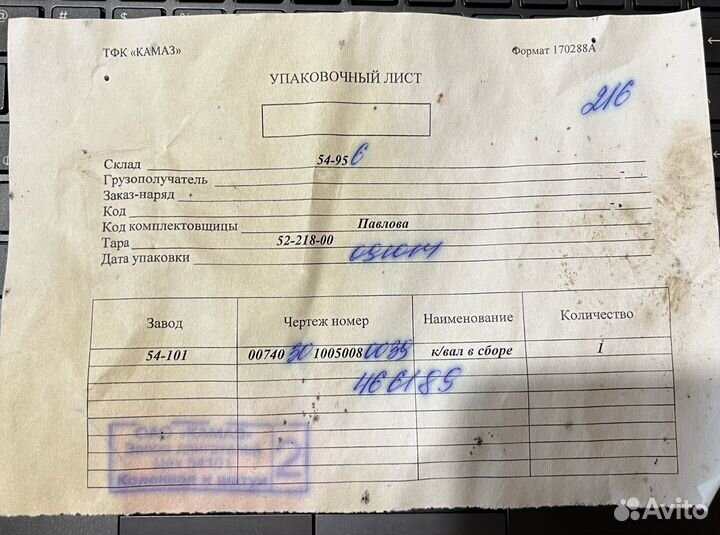 ТФК «КАМАЗ» Формат 170288А
УПАКОВОЧНЫЙ ЛИСТ
216
Склад 54-95 6
Грузополучатель
Заказ-наряд
Код
Код комплектовщицы Павлова
Тара 52-218-00
Дата упаковки
Завод Чертеж номер Наименование Количество
54-101 00740 30 1005008 0035 к/вал в сборе 1
466189
2
Avito